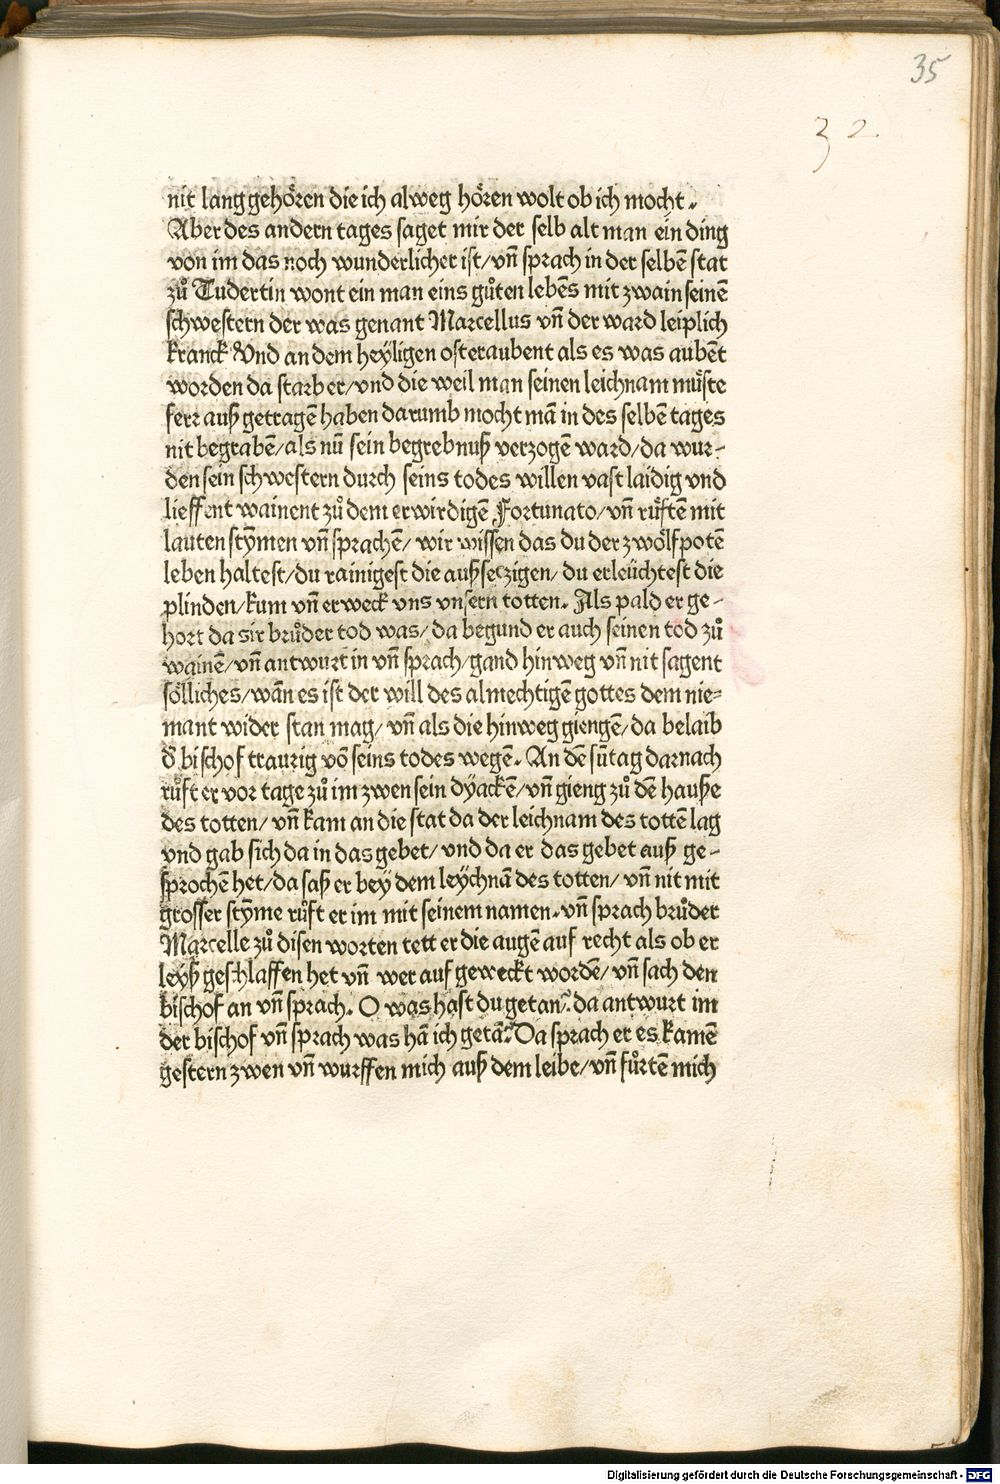 35
32.
nit lang gehören die ich alweg hören wolt ob ich mocht.
Aber des andern tages saget mir der selb alt man ein ding
von im das noch wunderlicher ist/ vn̄ sprach in der selbē stat
zů Tudertin wont ein man eins gůten lebēs mit zwain seinē
schwestern der was genant Marcellus vn̄ der ward leiplich
kranck Vnd an dem heÿligen osteraubent als es was aubēt
worden da starb er/ vnd die weil man seinen leichnam můste
ferr auß getragē haben darumb mocht mā in des selbē tages
nit begrabē/ als nū sein begrebnuß verzogē ward/ da wur-
den sein schwestern durch seins todes willen vast laidig vnd
lieffent wainent zů dem erwirdigē Fortunato/ vn̄ růftē mit
lauten stÿmen vn̄ sprachē/ wir wissen das du der zwölfpotē
leben haltest/ du rainigest die außseczigen/ du erleüchtest die
plinden/ kum vn̄ erweck vns vnsern totten. Als pald er ge-
hort da sir brůder tod was/ da begund er auch seinen tod zů
wainē/ vn̄ antwurt in vn̄ sprach/ gand hinweg vn̄ nit sagent
sölliches/ wān es ist der will des almechtigē gottes dem nie-
mant wider stan mag/ vn̄ als die hinweg giengē/ da belaib
d̄ bischof traurig vō seins todes wegē. An dē sūtag darnach
růft er vor tage zů im zwen sein dÿackē/ vn̄ gieng zů dē hauße
des totten/ vn̄ kam an die stat da der leichnam des tottē lag
vnd gab sich da in das gebet/ vnd da er das gebet auß ge-
sprochē het/ da saß er bey dem leÿchnā des totten/ vn̄ nit mit
grosser stÿme růft er im mit seinem namen. vn̄ sprach brůder
Marcelle zů disen worten tett er die augē auf recht als ob er
leÿß geschlaffen het vn̄ wer auf geweckt wordē/ vn̄ sach den
bischof an vn̄ sprach. O was hast du getan? da antwurt im
der bischof vn̄ sprach was hā ich getā? Da sprach er es kamē
gestern zwen vn̄ wurffen mich auß dem leibe/ vn̄ fůrtē mich
Digitalisierung gefördert durch die Deutsche Forschungsgemeinschaft - DFG